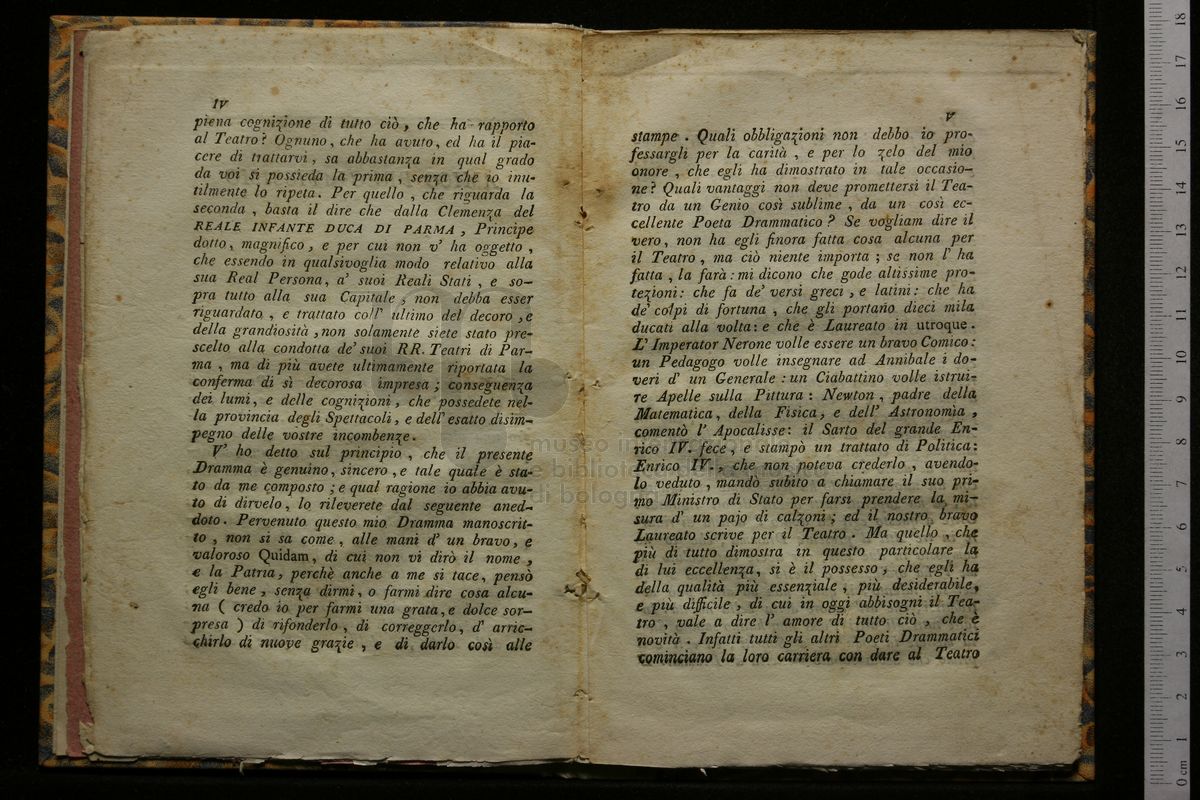 IV
piena cognizione di tutto ciò, che ha rapporto
al Teatro? Ognuno, che ha avuto, ed ha il pia-
cere di trattarvi, sa abbastanza in qual grado
da voi si possieda la prima, senza che io inu-
tilmente lo ripeta. Per quello, che riguarda la
seconda, basta il dire che dalla Clemenza del
REALE INFANTE DUCA DI PARMA, Principe
dotto, magnifico, e per cui non v' ha oggetto,
che essendo in qualsivoglia modo relativo alla
sua Real Persona, a' suoi Reali Stati, e so-
pra tutto alla sua Capitale, non debba esser
riguardato, e trattato coll' ultimo del decoro, e
della grandiosità, non solamente siete stato pre-
scelto alla condotta de' suoi RR. Teatri di Par-
ma, ma di più avete ultimamente riportata la
conferma di sì decorosa impresa; conseguenza
dei lumi, e delle cognizioni, che possedete nel-
la provincia degli Spettacoli, e dell' esatto disim-
pegno delle vostre incombenze.
V' ho detto sul principio, che il presente
Dramma è genuino, sincero, e tale quale è sta-
to da me composto; e qual ragione io abbia avu-
to di dirvelo, lo rileverete dal seguente aned-
doto. Pervenuto questo mio Dramma manoscrit-
to, non si sa come, alle mani d' un bravo, e
valoroso Quidam, di cui non vi dirò il nome,
e la Patria, perchè anche a me si tace, pensò
egli bene, senza dirmi, o farmi dire cosa alcu-
na ( credo io per farmi una grata, e dolce sor-
presa ) di rifonderlo, di correggerlo, d' arric-
chirlo di nuove grazie, e di darlo così alle
V
stampe. Quali obbligazioni non debbo io pro-
fessargli per la carità, e per lo zelo del mio
onore, che egli ha dimostrato in tale occasio-
ne? Quali vantaggi non deve promettersi il Tea-
tro da un Genio così sublime, da un così ec-
cellente Poeta Drammatico? Se vogliam dire il
vero, non ha egli finora fatta cosa alcuna per
il Teatro, ma ciò niente importa; se non l' ha
fatta, la farà: mi dicono che gode altissime pro-
tezioni: che fa de' versi greci, e latini: che ha
de' colpi di fortuna, che gli portano dieci mila
ducati alla volta: e che è Laureato in utroque.
L' Imperator Nerone volle essere un bravo Comico:
un Pedagogo volle insegnare ad Annibale i do-
veri d' un Generale: un Ciabattino volle istrui-
re Apelle sulla Pittura: Newton, padre della
Matematica, della Fisica, e dell' Astronomia,
comentò l' Apocalisse: il Sarto del grande En-
rico IV. fece, e stampò un trattato di Politica:
Enrico IV., che non poteva crederlo, avendo-
lo veduto, mandò subito a chiamare il suo pri-
mo Ministro di Stato per farsi prendere la mi-
sura d' un pajo di calzoni; ed il nostro bravo
Laureato scrive per il Teatro. Ma quello, che
più di tutto dimostra in questo particolare la
di lui eccellenza, si è il possesso, che egli ha
della qualità più essenziale, più desiderabile,
e più difficile, di cui in oggi abbisogni il Tea-
tro, vale a dire l' amore di tutto ciò, che è
novità. Infatti tutti gli altri Poeti Drammatici
cominciano la loro carriera con dare al Teatro
0 cm 1 2 3 4 5 6 7 8 9 10 11 12 13 14 15 16 17 18